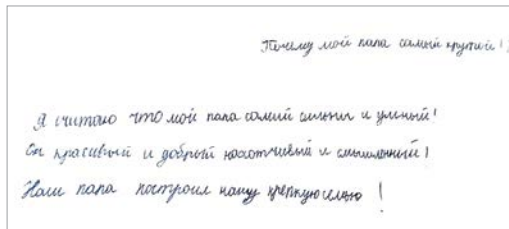 Почему мой папа самый крутой!
Я считаю что мой папа самий сильни и умный!
Он красивый и добрый насотчивый и смышленный!
Наш папа построил нашу крепкую семью !